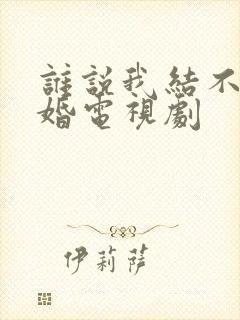 誰說我結不
婚電視劇
伊莉萨